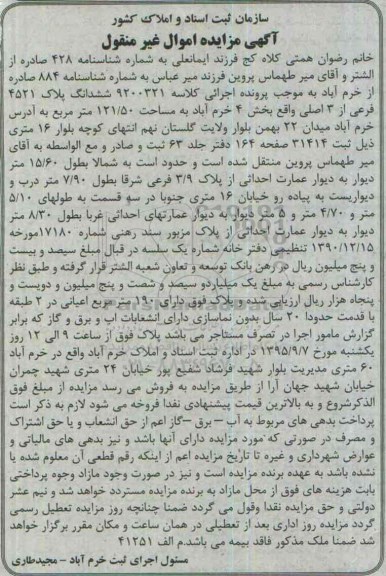 سازمان ثبت اسناد و املاک کشور
آگهی مزایده اموال غیر منقول
خانم رضوان همتی کلاه کج فرزند ایمانعلی به شماره شناسنامه ۴۲۸ صادره از
الشتر و آقای میر طهماس پروین فرزند میر عباس به شماره شناسنامه ۸۸۴ صادره
از خرم آباد به موجب پرونده اجرائی کلاسه ۹۲۰۰۳۲۱ ششدانگ پلاک ۴۵۲۱
فرعی از ۳ اصلی واقع بخش ۴ خرم آباد به مساحت ۱۲۱/۵۰ متر مربع به آدرس
خرم آباد میدان ۲۲ بهمن بلوار ولایت گلستان نهم انتهای کوچه بلوار ۱۶ متری
ذیل ثبت ۳۱۴۱۴ صفحه ۱۶۴ دفتر جلد ۶۳ ثبت و صادر و مع الواسطه به آقای
میر طهماس پروین منتقل شده است و حدود است به شمالا بطول ۱۵/۶۰ متر
دیوار به دیوار عمارت احداثی از پلاک ۳/۹ فرعی شرقا بطول ۷/۹۰ متر درب و
دیواریست به پیاده رو خیابان ۱۶ متری جنوبا در سه قسمت به طولهای ۵/۱۰
متر و ۴/۷۰ متر و ۵ متر دیوار به دیوار عمارتهای احداثی غربا بطول ۸/۳۰ متر
دیوار به دیوار عمارت احداثی از پلاک مزبور سند رهنی شماره ۱۷۱۸۰مورخه
۱۳۹۰/۱۲/۱۵ تنظیمی دفتر خانه شماره یک سلسه در قبال مبلغ سیصد و بیست
و پنج میلیون ریال در رهن بانک توسعه و تعاون شعبه الشتر قرار گرفته و طبق نظر
کارشناس رسمی به مبلغ یک میلیاردو سیصد و شصت و پنج میلیون و دویست و
پنجاه هزار ریال ارزیابی شده و پلاک فوق دارای ۱۹۰ متر مربع اعیانی در ۲ طبقه
با قدمت حدودا ۲۰ سال بدون نماسازی دارای انشعابات اب و برق و گاز که برابر
گزارش مامور اجرا در تصرف مستاجر می باشد پلاک فوق از ساعت ۹ الی ۱۲ روز
یکشنبه مورخ ۱۳۹۵/۹/۷ در اداره ثبت اسناد و املاک خرم آباد واقع در خرم آباد
۶۰ متری مدیریت بلوار شهید فرشاد شفیع پور خیابان ۲۴ متری شهید چمران
خیابان شهید جهان آرا از طریق مزایده به فروش می رسد مزایده از مبلغ فوق
الذکرشروع و به بالاترین قیمت پیشنهادی نقدا فروخه می شود لازم به ذکر است
پرداخت بدهی های مربوط به آب – برق –گاز اعم از حق انشعاب و یا حق اشتراک
و مصرف در صورتی که مورد مزایده دارای آنها باشد و نیز بدهی های مالیاتی و
عوارض شهرداری و غیره تا تاریخ مزایده اعم از اینکه رقم قطعی آن معلوم شده یا
نشده باشد به عهده برنده مزایده است و نیز در صورت وجود مازاد وجوه پرداختی
بابت هزینه های فوق از محل مازاد به برنده مزایده مسترد خواهد شد و نیم عشر
دولتی و حق مزایده نقدا وصول می گردد ضمنا چنانچه روز مزایده تعطیل رسمی
گردد مزایده روز اداری بعد از تعطیلی در همان ساعت و مکان مقرر برگزار خواهد
شد ضمنا ملک مذکور فاقد بیمه می باشد.م الف ۴۱۲۵۱
مسئول اجرای ثبت خرم آباد – مجیدطاری